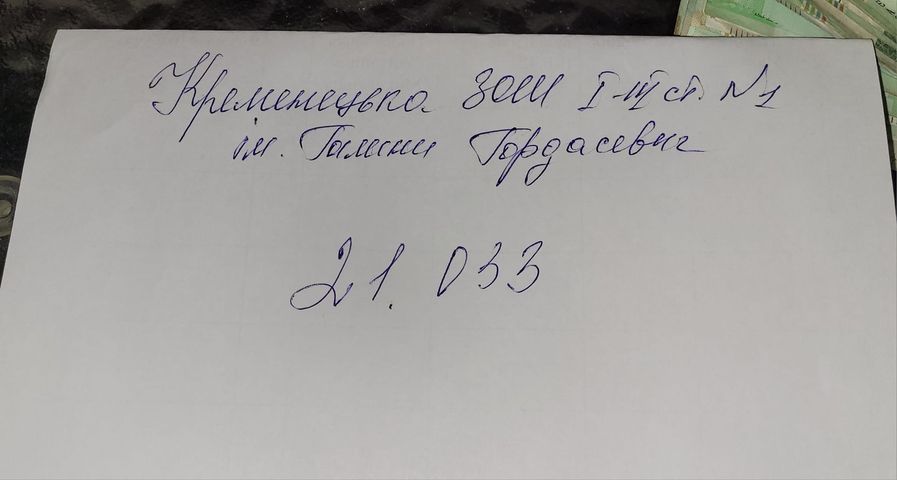 Кременецька ЗОШ І-ІІІ ст. №1
ім. Галини Гордасевич
21.033